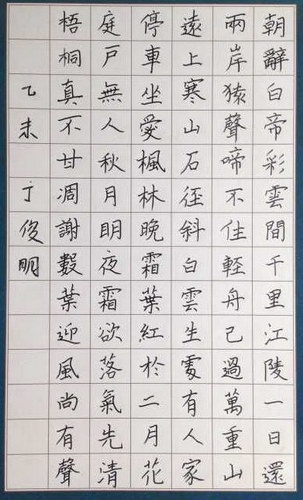 朝辭白帝彩雲間千里江陵一日還
兩岸猿聲啼不住輕舟已過萬重山
遠上寒山石徑斜白雲生處有人家
停車坐愛楓林晚霜葉紅於二月花
庭戶無人秋月明夜霜欲落氣先清
梧桐真不甘凋謝數葉迎風尚有聲
乙未 丁俊明